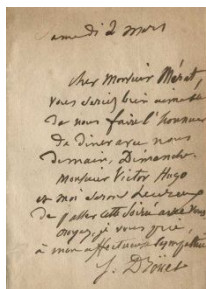 Samedi 2 mars
cher Monsieur Mérat,
vous seriez bien aimable
de nous faire l'honneur
de diner avec nous
demain, Dimanche.
Monsieur Victor Hugo
et moi serons heureux
de passer cette soirée avec vous
croyez, je vous prie,
à mon affectueuse sympathie
J. Drouet